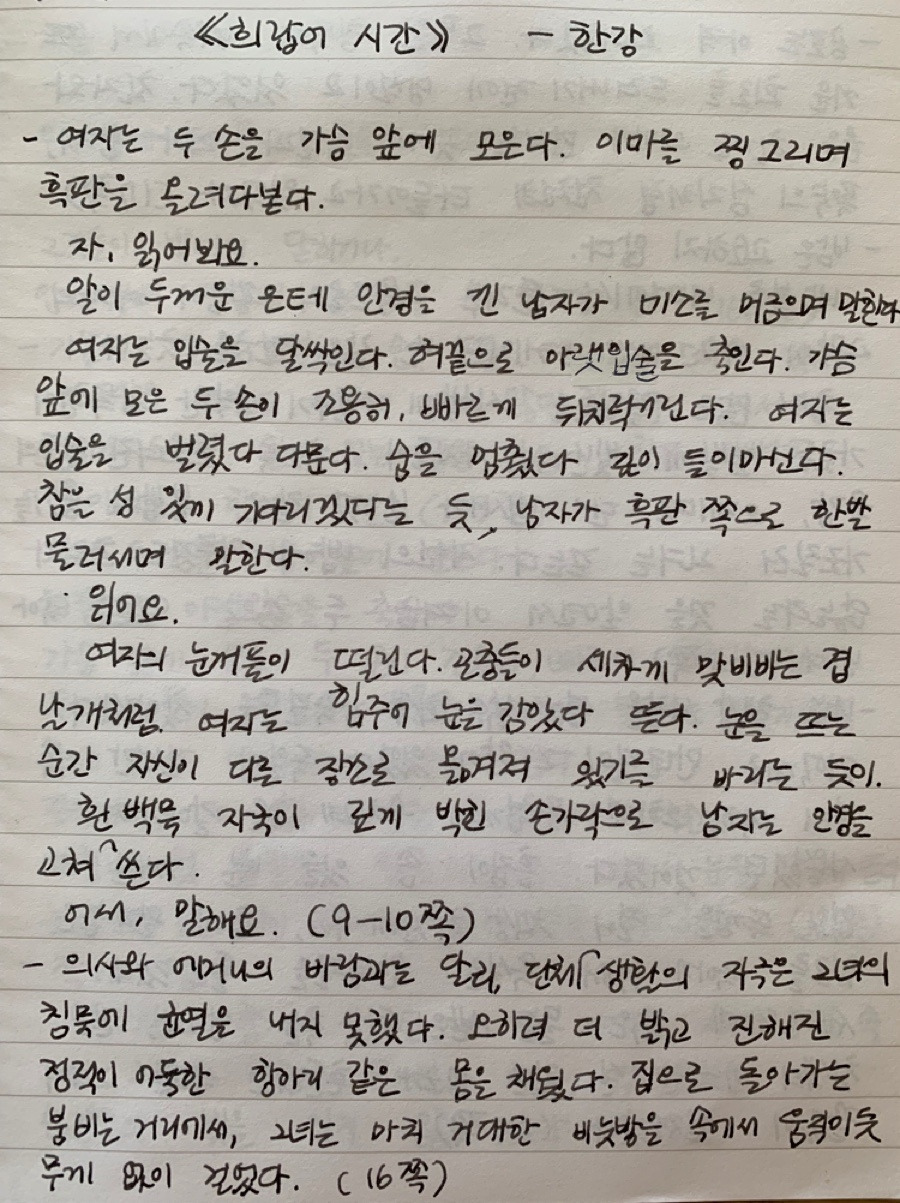 《희랍어 시간》 - 한강
- 여자는 두 손을 가슴 앞에 모은다. 이마를 찡그리며
흑판을 올려다본다.
자, 읽어봐요.
알이 두꺼운 은테 안경을 낀 남자가 미소를 머금으며 말한다
여자는 입술을 달싹인다. 혀끝으로 아랫입술을 축인다. 가슴
앞에 모은 두 손이 조용히, 빠르게 뒤치럭거린다. 여자는
입술을 벌렸다 다문다. 숨을 멈췄다 깊이 들이마신다.
참을성 있게 기다리겠다는 듯, 남자가 흑판 쪽으로 한발
물러서며 말한다.
읽어요.
여자의 눈꺼풀이 떨린다. 곤충들이 세차게 맞비비는 겹
날개처럼. 여자는 힘주어 눈을 감았다 뜬다. 눈을 뜨는
순간 자신이 다른 장소로 옮겨져 있기를 바라는 듯이.
흰 백묵 자국이 깊게 박힌 손가락으로 남자는 안경을
고쳐 쓴다.
어서, 말해요. (9-10쪽)
- 의사와 어머니의 바람과는 달리, 단체 생활의 자극은 그녀의
침묵에 균열을 내지 못했다. 오히려 더 밝고 진해진
정적이 어둑한 항아리 같은 몸을 채웠다. 집으로 돌아가는
붐비는 거리에서, 그녀는 마치 거대한 비눗방울 속에서 움직이듯
무게 없이 걸었다. (16쪽)